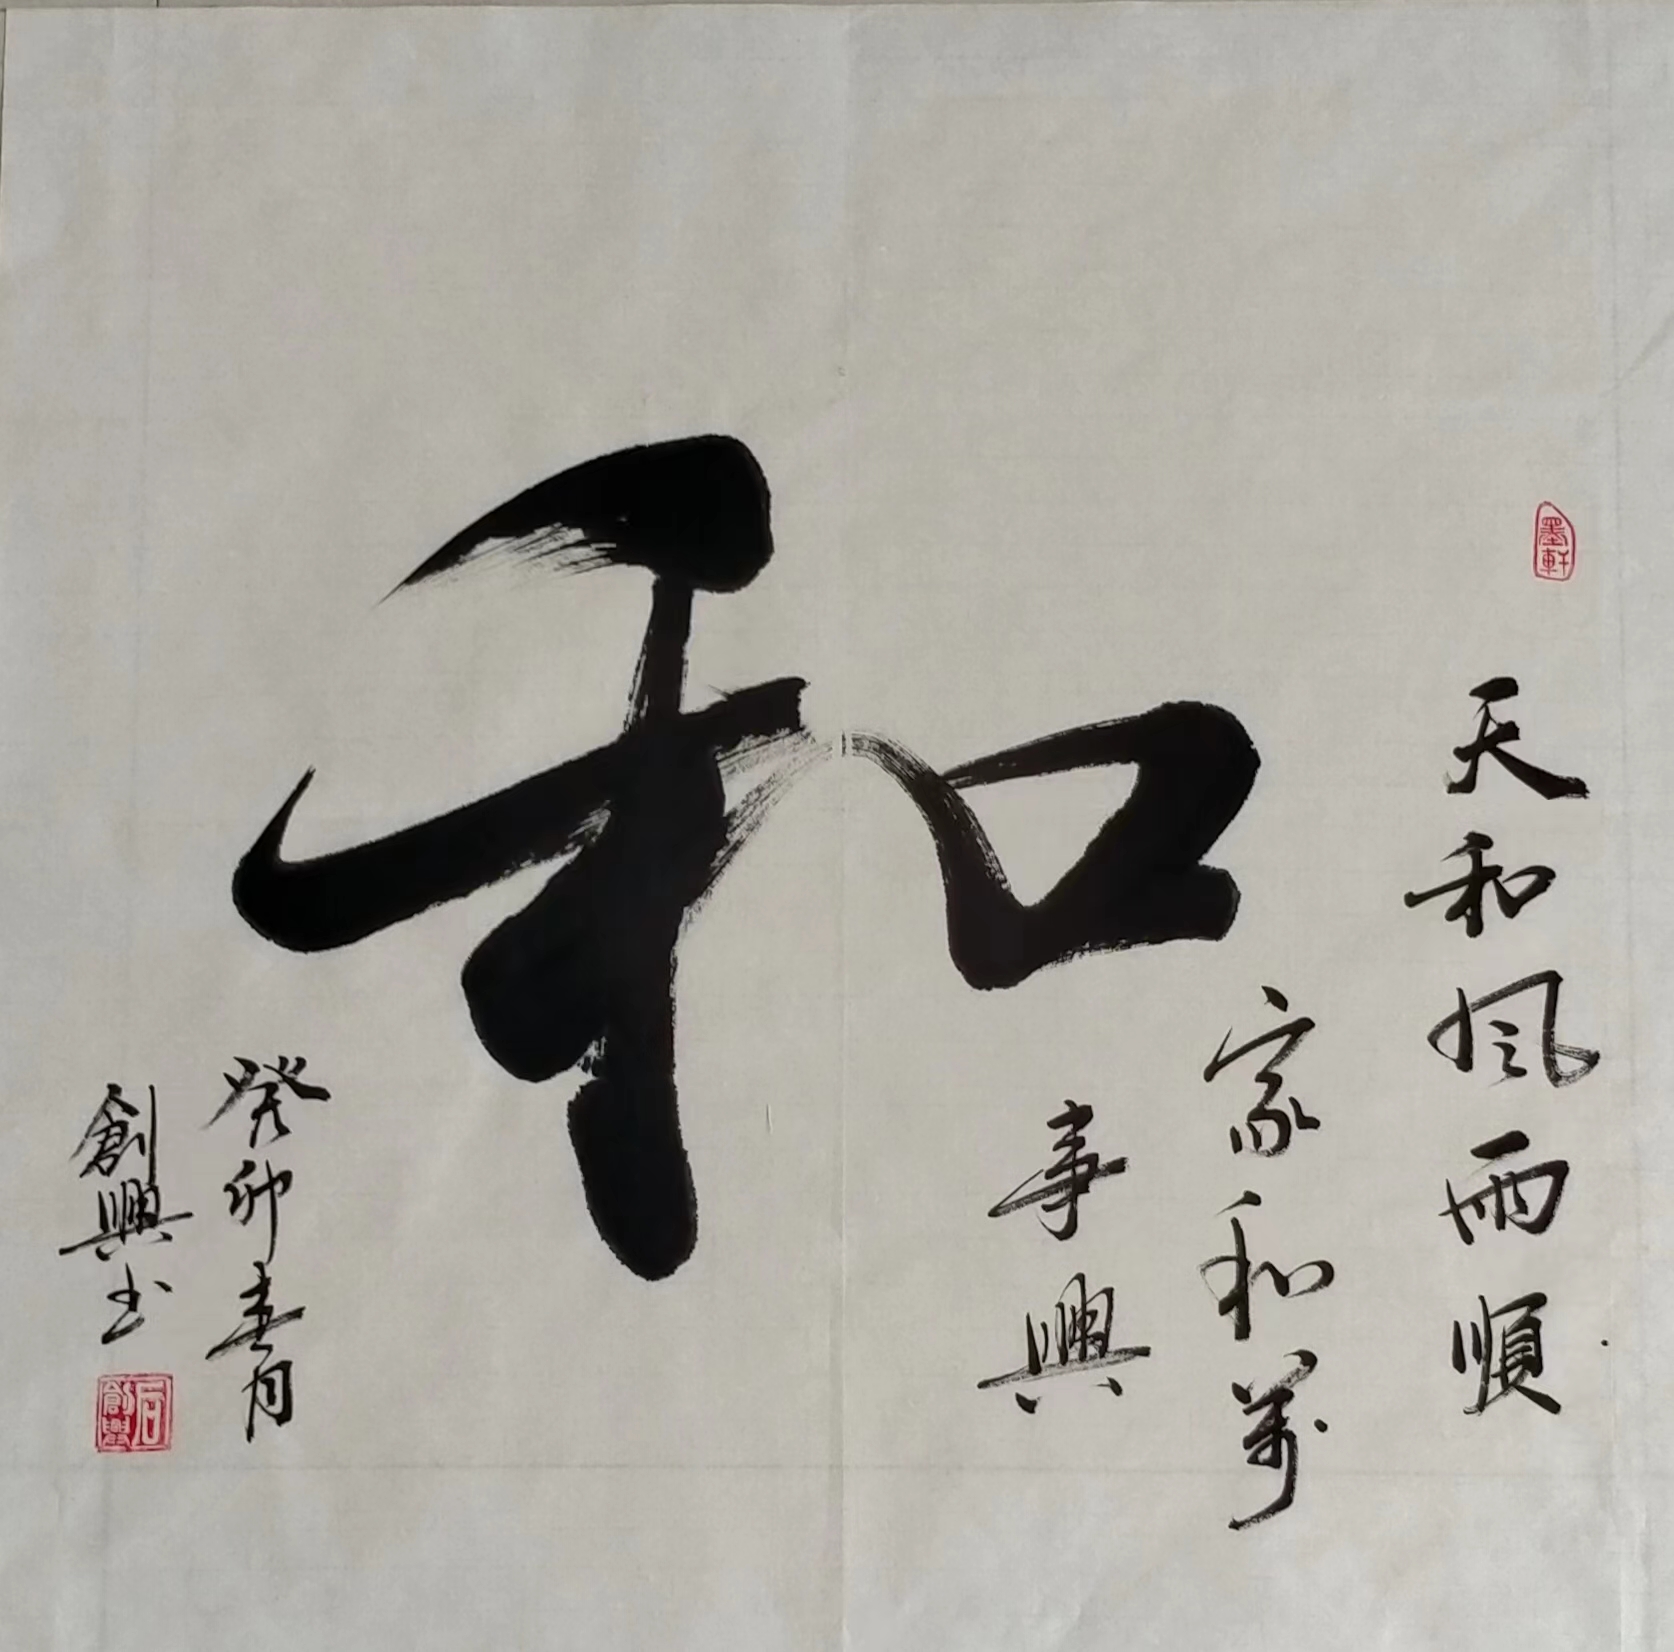 墨軒
天和風雨順
家和萬
事興
和
癸卯春月
創興书
石創興